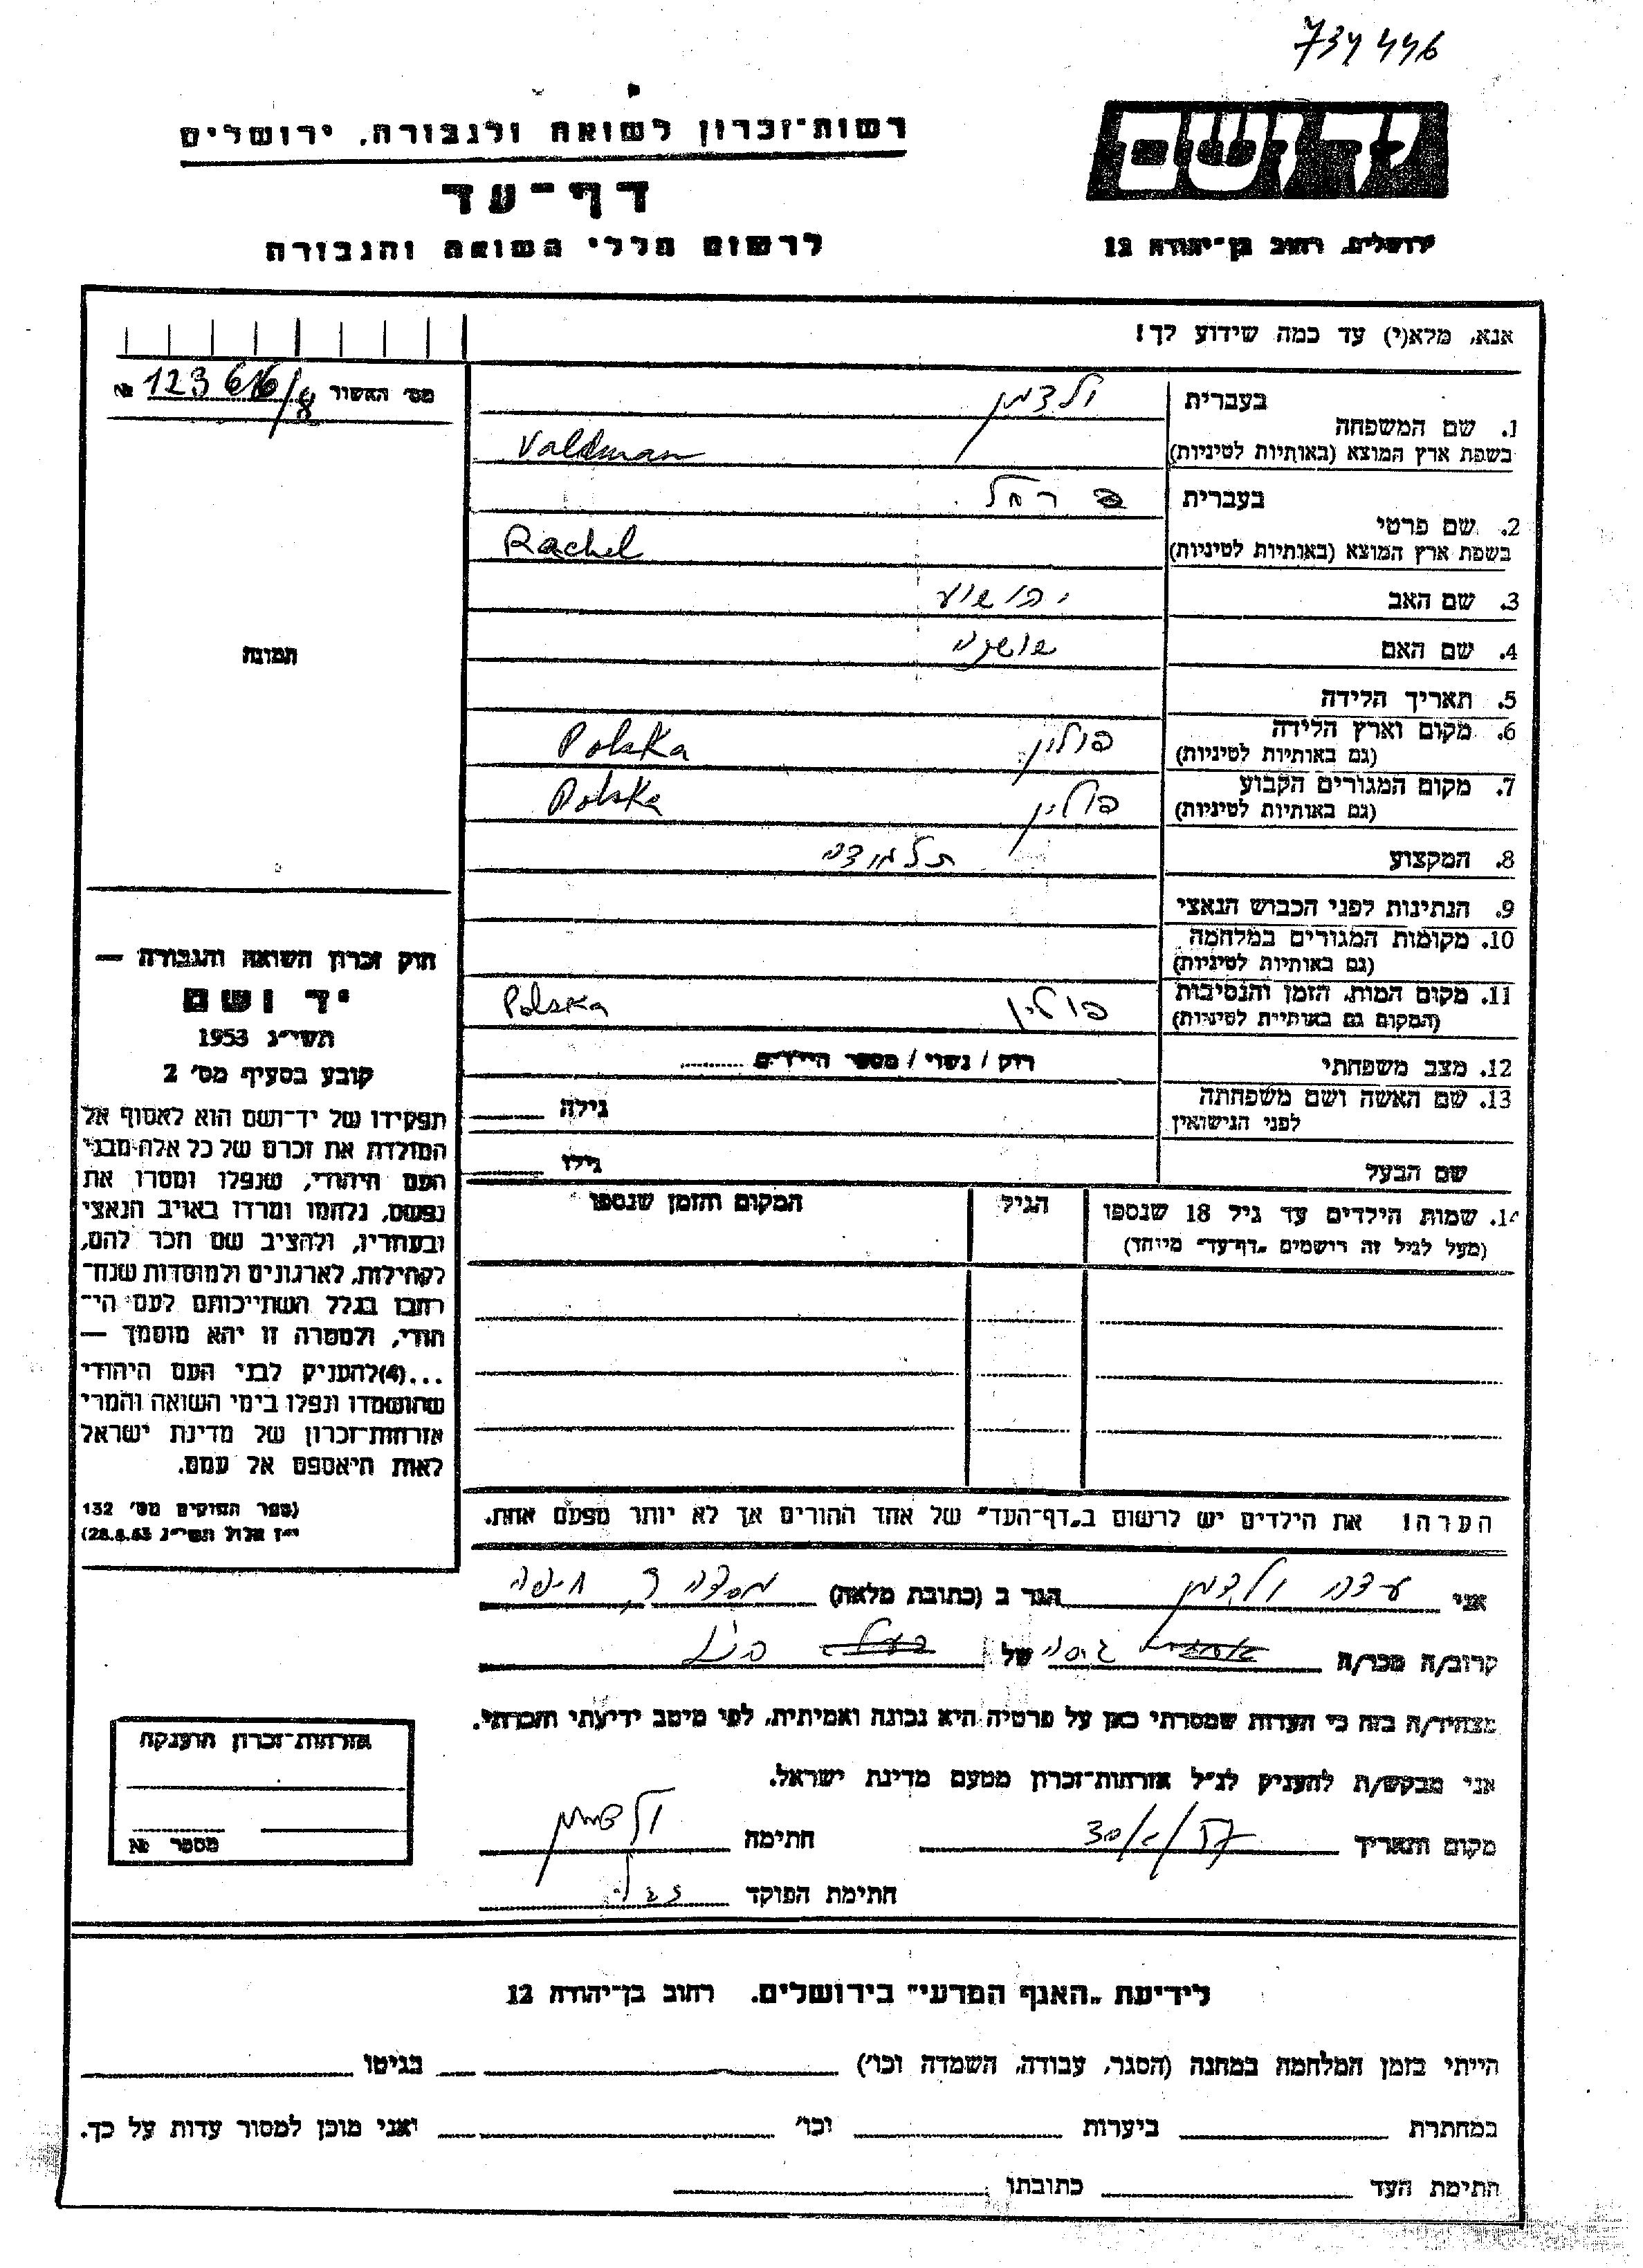 734446
יד ושם
ירושלים, רחוב בן־יהודה 12
רשות־זכרון לשואה ולגבורה, ירושלים
דף־עד
לרשום חללי השואה והגבורה
אנא, מלא(י) עד כמה שידוע לך!
מס' האשור 123616/8 №
תמונה
1. שם המשפחה
בעברית ולדמן
בשפת ארץ המוצא (באותיות לטיניות) Valdman
2. שם פרטי
בעברית רחל
בשפת ארץ המוצא (באותיות לטיניות) Rachel
3. שם האב יהושוע
4. שם האם שושנה
5. תאריך הלידה
6. מקום וארץ הלידה פולין Polska
(גם באותיות לטיניות)
7. מקום המגורים הקבוע פולין Polska
(גם באותיות לטיניות)
8. המקצוע תלמידה
9. הנתינות לפני הכבוש הנאצי
10. מקומות המגורים במלחמה
(גם באותיות לטיניות)
11. מקום המות, הזמן והנסיבות פולין Polska
(המקום גם באותיות לטיניות)
12. מצב משפחתי רוק / נשוי / מספר הילדים
13. שם האשה ושם משפחתה גילה
לפני הנישואין
שם הבעל גילו
14. שמות הילדים עד גיל 18 שנספו הגיל המקום והזמן שנספו
(מעל לגיל זה רושמים „דף־עד" מיוחד)
הערה! את הילדים יש לרשום ב„דף־העד" של אחד ההורים אך לא יותר מפעם אחת.
חוק זכרון השואה והגבורה —
יד ושם
תשי"ג 1953
קובע בסעיף מס' 2
תפקידו של יד־ושם הוא לאסוף אל
המולדת את זכרם של כל אלה מבני
העם היהודי, שנפלו ומסרו את
נפשם, נלחמו ומרדו באויב הנאצי
ובעוזריו, ולהציב שם וזכר להם,
לקהילות, לארגונים ולמוסדות שנח־
רבו בגלל השתייכותם לעם הי־
הודי, ולמטרה זו יהא מוסמך —
...(4) להעניק לבני העם היהודי
שהושמדו ונפלו בימי השואה והמרי
אזרחות־זכרון של מדינת ישראל
לאות היאספם אל עמם.
(ספר החוקים מס' 132
י"ז אלול תשי"ג 28.8.53)
אני עדה ולדמן הגר ב (כתובת מלאה) מסדה חיפה
קרוב/ה מכר/ה גיסה של
מצהיר/ה בזה כי העדות שמסרתי כאן על פרטיה היא נכונה ואמיתית, לפי מיטב ידיעתי והכרתי.
אני מבקש/ת להעניק לנ"ל אזרחות־זכרון מטעם מדינת ישראל.
מקום ותאריך חתימה ולדמן
חתימת הפוקד
אזרחות־זכרון הוענקה
מספר №
לידיעת „האגף המדעי" בירושלים. רחוב בן־יהודה 12
הייתי בזמן המלחמה במחנה (הסגר, עבודה, השמדה וכו') בגיטו
במחתרת ביערות וכו' ואני מוכן למסור עדות על כך.
חתימת העד כתובתו